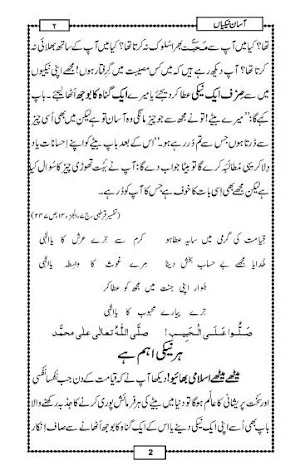 آسان نیکیاں
۲
تھا؟ کیا میں آپ سے مَحَبَّت بھرا سُلوک نہ کرتا تھا؟ کیا میں آپ کے ساتھ بھلائی نہ
کرتا تھا؟ آپ دیکھ رہے ہیں کہ میں کس مصیبت میں گِرِفتار ہوں! مجھے اپنی نیکیوں
میں سے صِرف ایک نیکی عطا کر دیجئے یا میرے ایک گناہ کا بوجھ اُٹھا لیجئے۔ باپ
کہے گا: ”میرے بیٹے! تو نے مجھ سے جو چیز مانگی وہ آسان تو ہے لیکن میں بھی اُسی چیز
سے ڈرتا ہوں جس سے تم ڈر رہے ہو۔“ اس کے بعد باپ بیٹے کو اپنے اِحسانات یاد
دِلا کر یہی مُطالَبہ کرے گا تو بیٹا جواب دے گا: آپ نے بَہُت تھوڑی چیز کا سُوال کیا
ہے لیکن مجھے بھی اِسی بات کا خوف ہے جس کا آپ کو ڈر ہے۔
(تفسیر قرطبی، ج۷، الجزء ۱۴، ص۲۴۷)
قیامت کی گرمی میں سایہ عطا ہو کرم سے ترے عرش کا یاالٰہی
خدایا مجھے بے حساب بخش دینا مرے غوث کا واسِطہ یاالٰہی
جَوار اپنی جنت میں مجھ کو عطا کر
ترے پیارے محبوب کا یاالٰہی
صَلُّوْا عَلَی الْحَبِیب! صلَّی اللّٰہُ تعالٰی علٰی محمَّد
ہر نیکی اہم ہے
میٹھے میٹھے اسلامی بھائیو! دیکھا آپ نے کہ قیامت کے دن جب نفسا نفسی
اور سخت پریشانی کا عالَم ہو گا تو دنیا میں بیٹے کی ہر فرمائش پوری کرنے کا جذبہ رکھنے والا
باپ بھی اُسے اپنی ایک نیکی دینے یا اس کے ایک گناہ کا بوجھ اُٹھانے سے صاف اِنکار
2